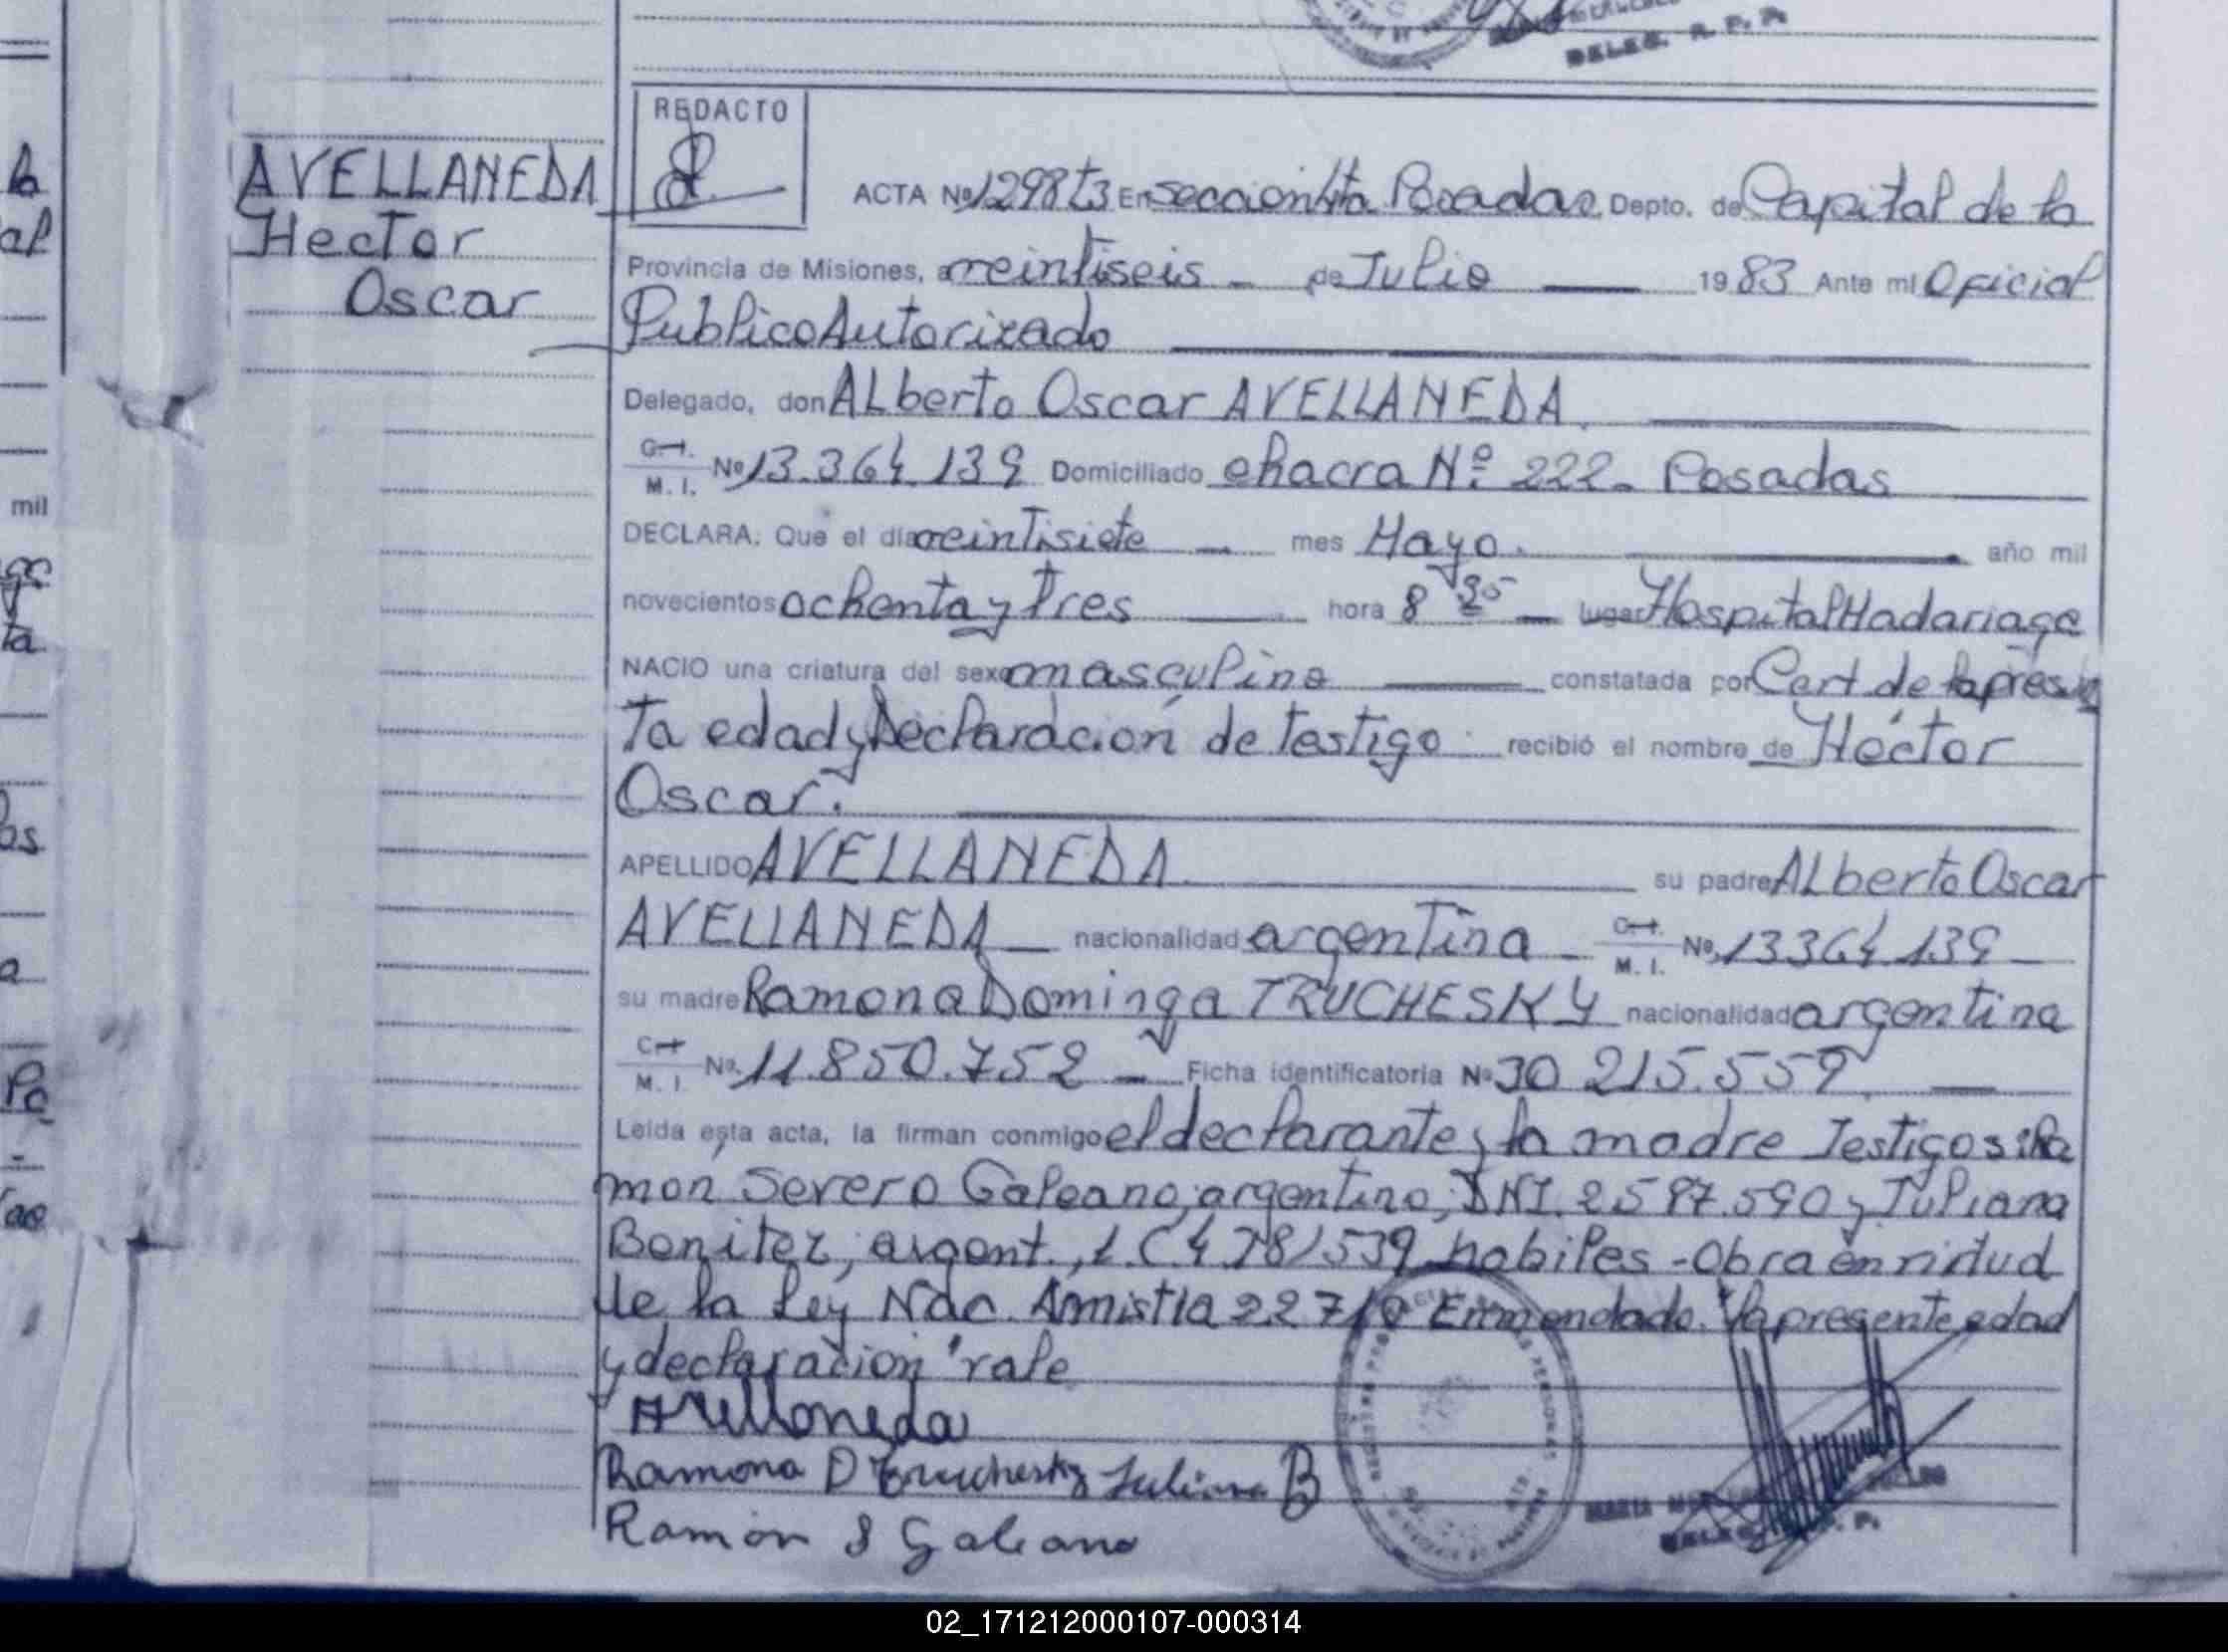 DELEG. R. P. P.
REDACTO
AVELLANEDA
Hector
Oscar
ACTA Nº 1298 t3 En Sección 4ta Posadas Depto. de Capital de la
Provincia de Misiones, a veintiseis - de Julio 1983 Ante mi Oficial
Publico Autorizado
Delegado, don Alberto Oscar AVELLANEDA.
C.I.
M. I. Nº 13.364.139 Domiciliado chacra Nº 222 - Posadas
DECLARA: Que el día veintisiete - mes Mayo. año mil
novecientos ochenta y tres hora 8 35 - lugar Hospital Madariaga
NACIO una criatura del sexo masculino constatada por Cert de la presun
ta edad y Declaración de testigo recibió el nombre de Héctor
Oscar.
APELLIDO AVELLANEDA su padre Alberto Oscar
AVELLANEDA - nacionalidad argentina - C.I.
M. I. Nº 13364.139 -
su madre Ramona Dominga TRUCHESKY nacionalidad argentina
C.I.
M. I. Nº 11.850.752 - Ficha identificatoria Nº 30 215.559
Leída esta acta, la firman conmigo el declarante y la madre Testigos: Ra
món Severo Galeano, argentino, DNI. 2587.590 y Juliana
Benitez, argent., L.C 4.781539 habiles - Obra en virtud
de la Ley Nac. Amnistia 22710 Enmendado. "la presente edad
y declaración" vale
Avellaneda
Ramona D Truchesky Juliana B
Ramón S Galeano
mil
02_171212000107-000314